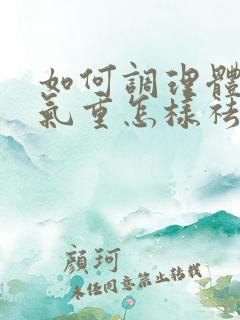 如何調理體
氣重怎樣祛
顏珂
未經同意禁止轉載